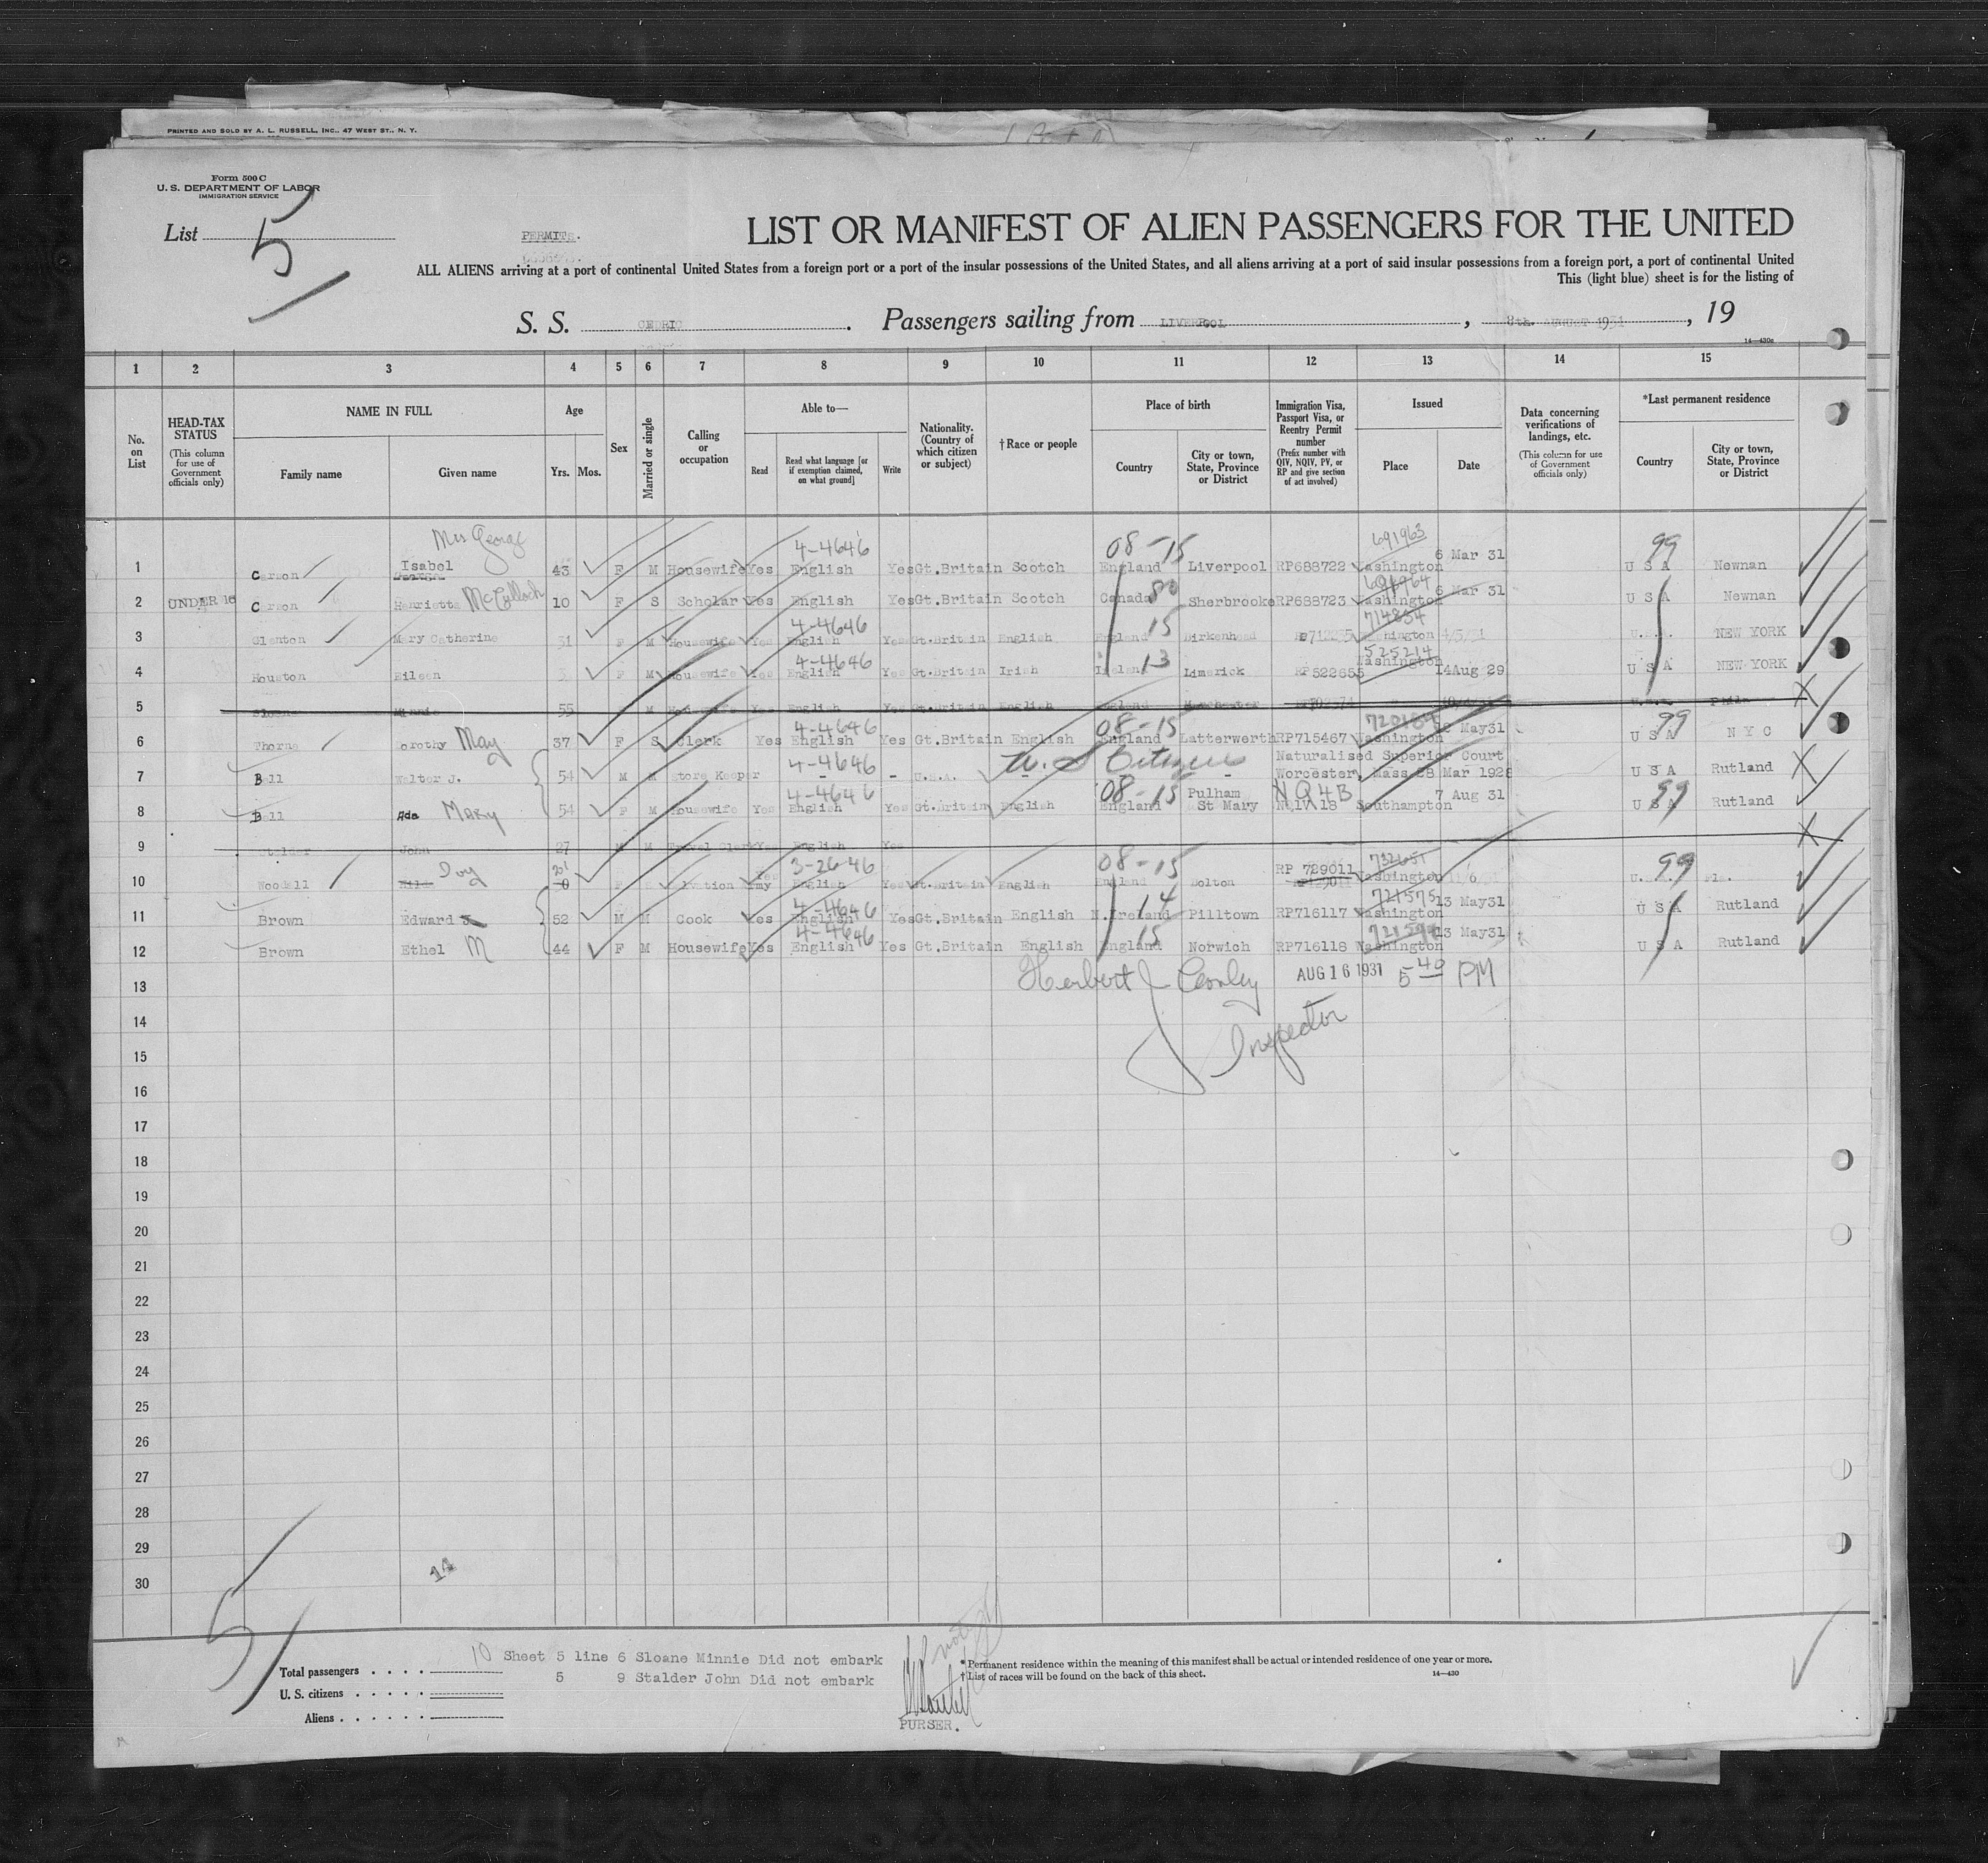 PRINTED AND SOLD BY A. L. RUSSELL, INC., 47 WEST ST., N. Y.
Form 500 C
U. S. DEPARTMENT OF LABOR
IMMIGRATION SERVICE
List 5
PERMITS.
LIST OR MANIFEST OF ALIEN PASSENGERS FOR THE UNITED
ALL ALIENS arriving at a port of continental United States from a foreign port or a port of the insular possessions of the United States, and all aliens arriving at a port of said insular possessions from a foreign port, a port of continental United
This (light blue) sheet is for the listing of
S. S. CEDRIC. Passengers sailing from LIVERPOOL, 8th. AUGUST 1931, 19
14—430c
1 2 3 4 5 6 7 8 9 10 11 12 13 14 15
No. on List
HEAD-TAX STATUS (This column for use of Government officials only)
NAME IN FULL
Family name
Given name
Age
Yrs. Mos.
Sex
Married or single
Calling or occupation
Able to—
Read
Read what language [or if exemption claimed, on what ground]
Write
Nationality. (Country of which citizen or subject)
†Race or people
Place of birth
Country
City or town, State, Province or District
Immigration Visa, Passport Visa, or Reentry Permit number (Prefix number with QIV, NQIV, PV, or RP and give section of act involved)
Issued
Place
Date
Data concerning verifications of landings, etc. (This column for use of Government officials only)
*Last permanent residence
Country
City or town, State, Province or District
Mrs George 4-4646 08-15 691963 99
1 Carson Isabel 43 F M Housewife Yes English Yes Gt.Britain Scotch England Liverpool RP688722 Washington 6 Mar 31 U S A Newnan
2 UNDER 16 Carson Henrietta McCulloch 10 F S Scholar Yes English Yes Gt.Britain Scotch Canada 80 Sherbrooke RP688723 691964 Washington 6 Mar 31 U S A Newnan
4-4646 15 714834
3 Mary Catherine 31 F M Housewife Yes English Yes Gt.Britain English England Birkenhead Washington 4/5/31 NEW YORK
4-4646 13 525214
4 Houston Eileen F M Housewife Yes English Yes Gt.Britain Irish Limerick RP522655 Washington 14Aug 29 U S A NEW YORK
5 Sloane Minnie 55 M Housewife Yes English Yes Gt.Britain English England Manchester Phila
4-4646 08-15 99
6 Thorne Dorothy May 37 F S Clerk Yes English Yes Gt.Britain English England Latterwerth RP715467 Washington May31 U S A N Y C
4-4646 U. S Citizen Naturalised Superior Court
7 Bell Walter J. 54 M M Store Keeper - - - U.S.A. - - - Worcester, Mass 28 Mar 1928 U S A Rutland
4-4646 08-15 Pulham NQ4B 7 Aug 31 99
8 Bell Ada MARY 54 F M Housewife Yes English Yes Gt.Britain English England St Mary NQIV 18 Southampton U S A Rutland
9 Stalder John 27 M M Travel Clerk Yes English Yes
3-26-46 08-15 RP 729011 732651 99
10 Woodall Doy English Yes Gt.Britain English England Bolton Washington Fla.
4-4646 14 721575
11 Brown Edward J. 52 M M Cook Yes English Yes Gt.Britain English N.Ireland Pilltown RP716117 Washington 13 May31 U S A Rutland
4-4646 15 721594
12 Brown Ethel M 44 F M Housewife Yes English Yes Gt.Britain English England Norwich RP716118 Washington 13 May31 U S A Rutland
13 Herbert J Conley AUG 16 1931 5 40 PM
14 Inspector
15
16
17
18
19
20
21
22
23
24
25
26
27
28
29
30
14
5
Total passengers . . . . 10
U. S. citizens . . . . .
Aliens . . . . . .
Sheet 5 line 6 Sloane Minnie Did not embark
5 9 Stalder John Did not embark
PURSER.
*Permanent residence within the meaning of this manifest shall be actual or intended residence of one year or more.
†List of races will be found on the back of this sheet.
14—430